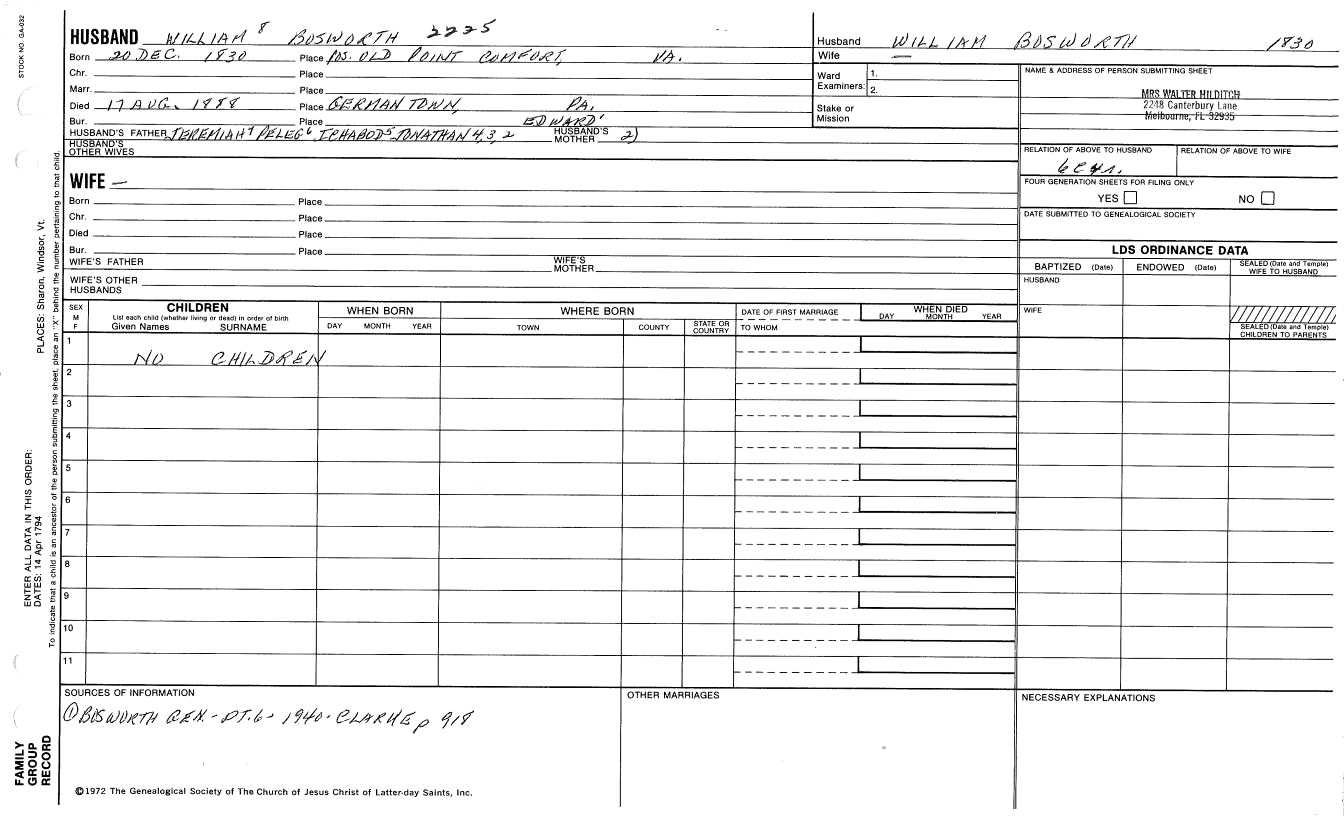 STOCK NO. GA-032
HUSBAND WILLIAM 8 BOSWORTH 2225
Born 20 DEC. 1830 Place POS. OLD POINT COMFORT, VA.
Chr. Place
Marr. Place
Died 17 AUG. 1888 Place GERMAN TOWN, PA.
Bur. Place EDWARD 1
HUSBAND'S FATHER JEREMIAH 7 PELEG 6 ICHABOD 5 JONATHAN 4,3,2 HUSBAND'S MOTHER 2)
HUSBAND'S OTHER WIVES
WIFE —
Born Place
Chr. Place
Died Place
Bur. Place
WIFE'S FATHER WIFE'S MOTHER
WIFE'S OTHER HUSBANDS
Husband WILLIAM BOSWORTH 1830
Wife —
Ward Examiners: 1. 2.
Stake or Mission
NAME & ADDRESS OF PERSON SUBMITTING SHEET
MRS WALTER HILDITCH
2248 Canterbury Lane
Melbourne, FL 32935
RELATION OF ABOVE TO HUSBAND RELATION OF ABOVE TO WIFE
FOUR GENERATION SHEETS FOR FILING ONLY
YES NO
DATE SUBMITTED TO GENEALOGICAL SOCIETY
LDS ORDINANCE DATA
BAPTIZED (Date) ENDOWED (Date) SEALED (Date and Temple) WIFE TO HUSBAND
HUSBAND
WIFE
SEALED (Date and Temple) CHILDREN TO PARENTS
SEX M F
CHILDREN
List each child (whether living or dead) in order of birth
Given Names SURNAME
WHEN BORN
DAY MONTH YEAR
WHERE BORN
TOWN COUNTY STATE OR COUNTRY
DATE OF FIRST MARRIAGE
TO WHOM
WHEN DIED
DAY MONTH YEAR
1 NO CHILDREN
2
3
4
5
6
7
8
9
10
11
SOURCES OF INFORMATION
① BOSWORTH GEN. - PT. 6 - 1940 - CLARKE p 918
OTHER MARRIAGES
NECESSARY EXPLANATIONS
©1972 The Genealogical Society of The Church of Jesus Christ of Latter-day Saints, Inc.
FAMILY GROUP RECORD
ENTER ALL DATA IN THIS ORDER:
DATES: 14 Apr 1794 PLACES: Sharon, Windsor, Vt.
To indicate that a child is an ancestor of the person submitting the sheet, place an "X" behind the number pertaining to that child.